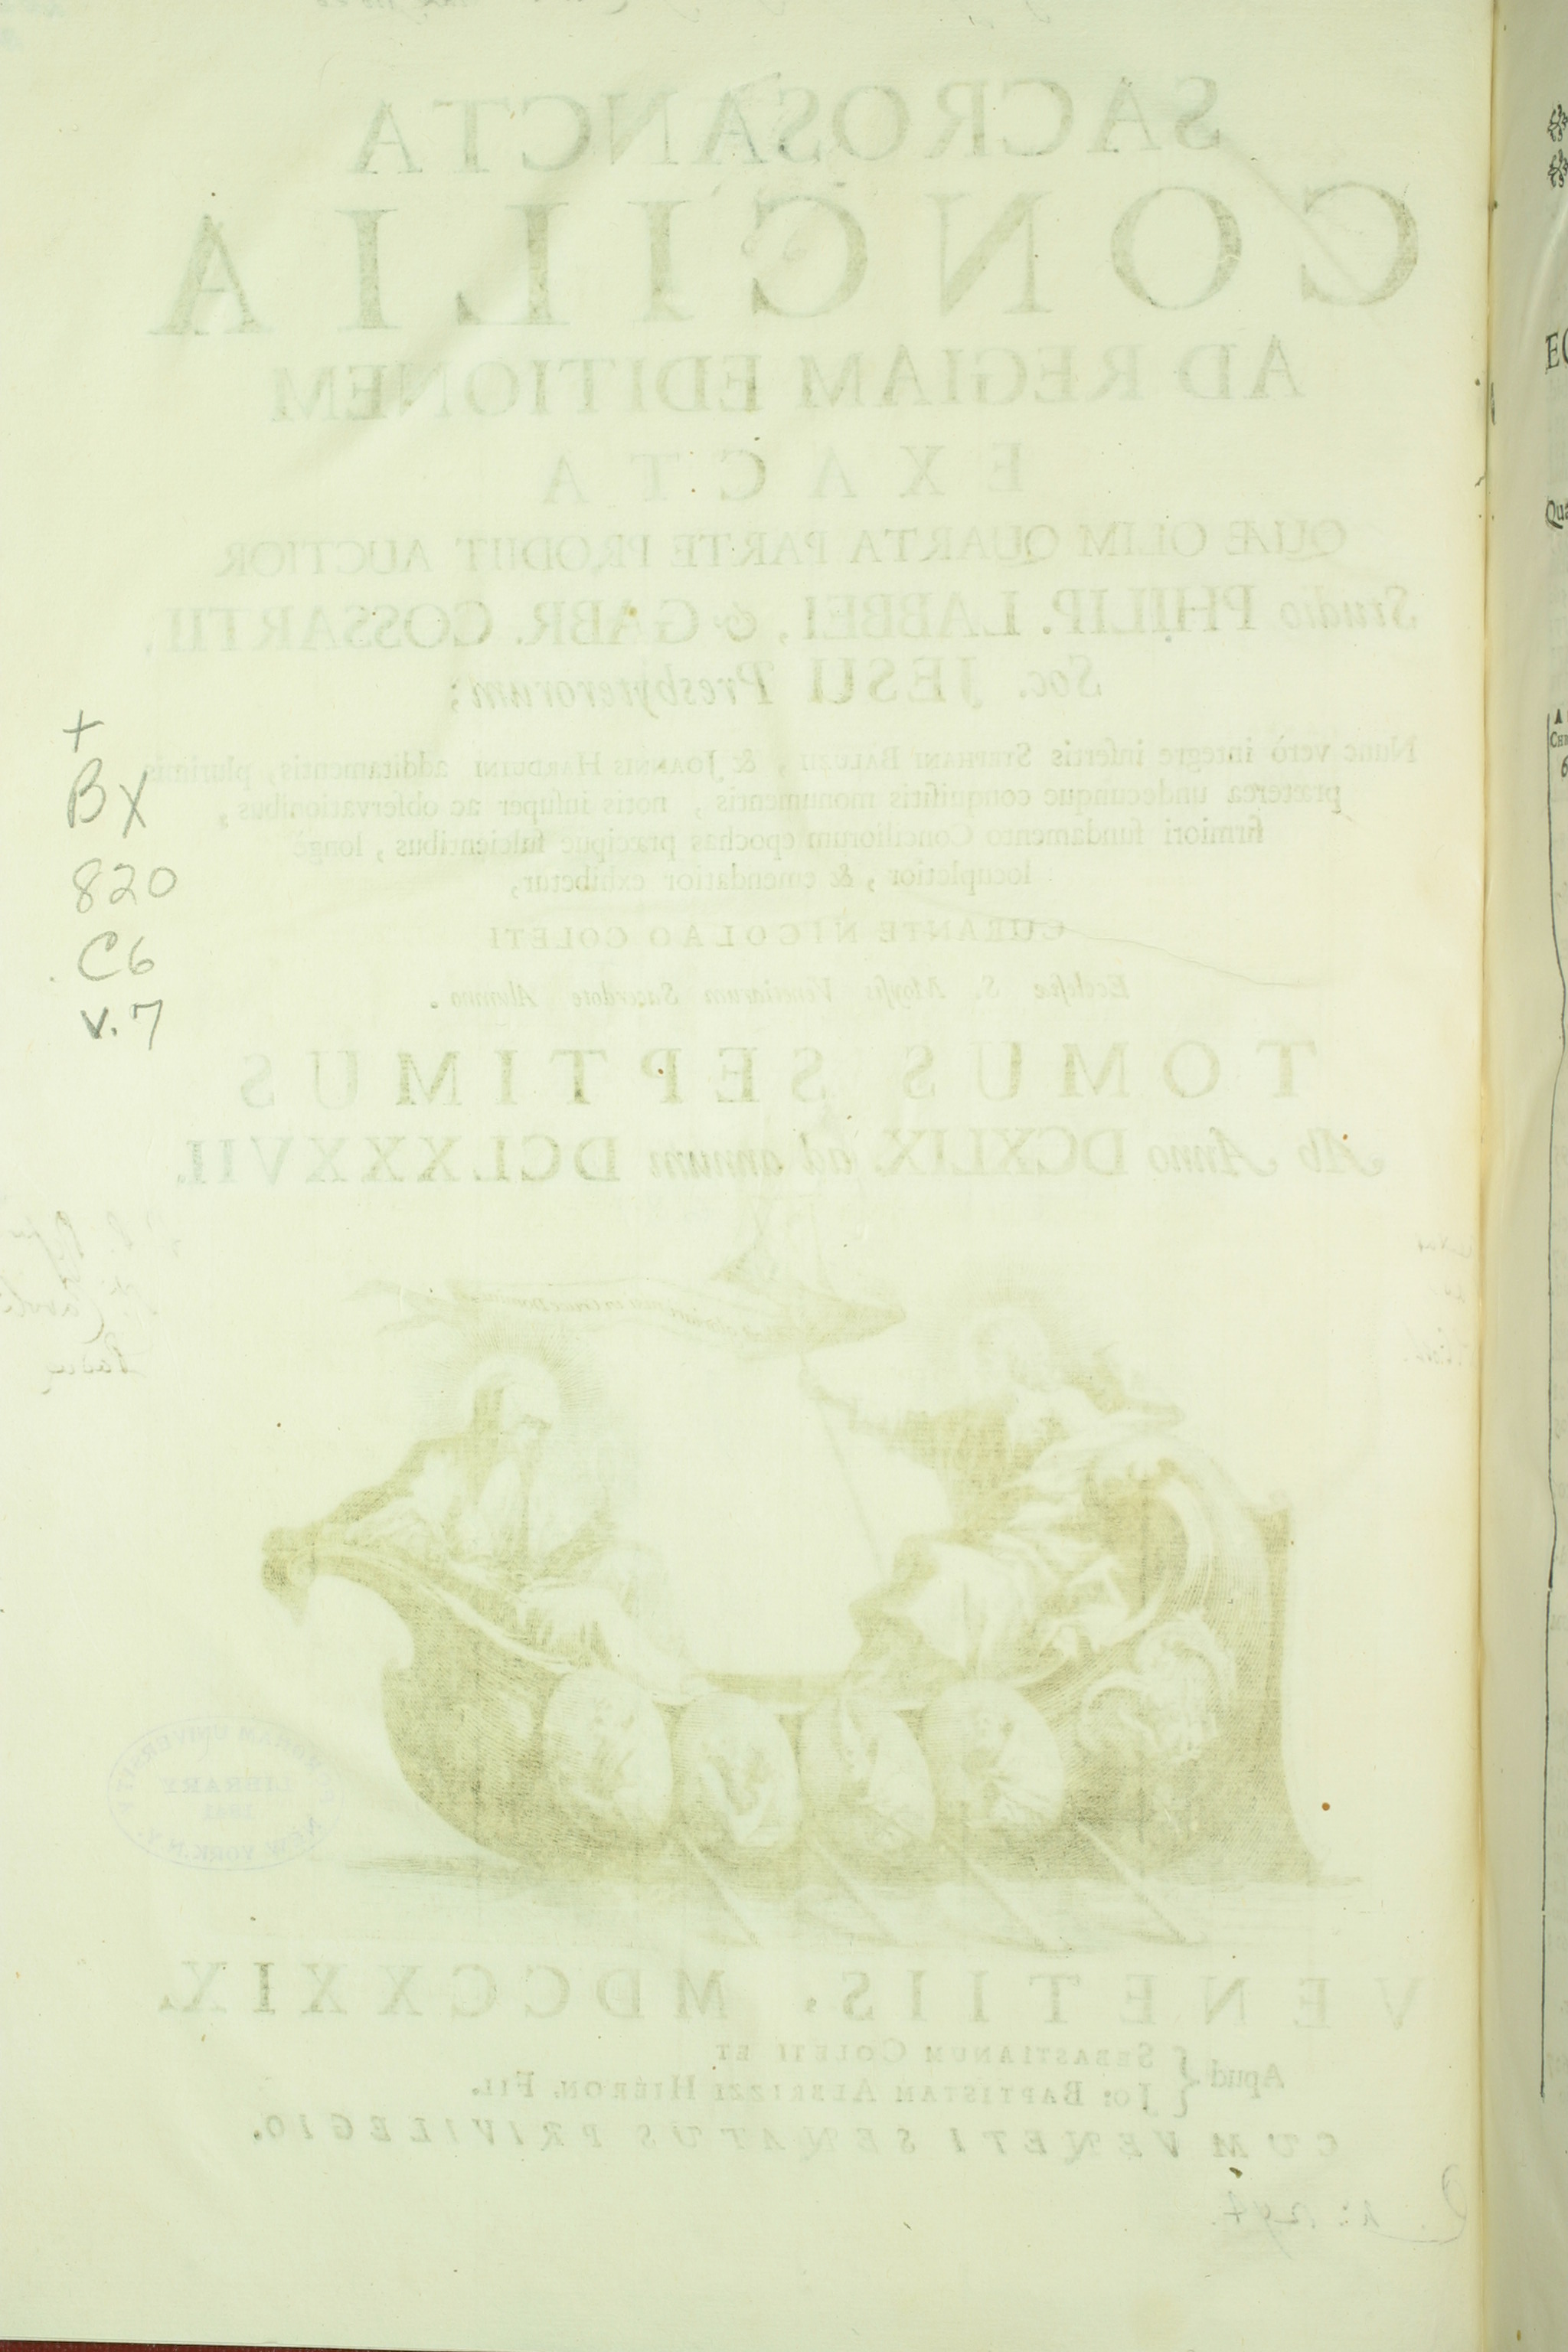 SACROSANCTA
CONCILIA
AD REGIAM EDITIONEM
EXACTA
QUÆ OLIM QUARTA PARTE PRODIIT AUCTIOR
Studio PHILIP. LABBEI, & GABR. COSSARTII,
Soc. JESU Presbyterorum;
Nunc verò integre insertis STEPHANI BALUZII, & JOANNIS HARDUINI additamentis, plurimis
præterea undecunque conquisitis monumentis, notis insuper ac observationibus,
firmiori fundamento Conciliorum epochas præcipue fulcientibus, longè
locupletior, & emendatior exhibetur,
CURANTE NICOLAO COLETI
Ecclesiæ S. Moysis Venetiarum Sacerdote Alumno.
TOMUS SEPTIMUS
Ab Anno DCXLIX. ad annum DCLXXXVII.
+
BX
820
.C6
v.7
FORDHAM UNIVERSITY
LIBRARY
1841
NEW YORK, N.Y.
VENETIIS, MDCCXXIX.
Apud { SEBASTIANUM COLETI ET
{ JO: BAPTISTAM ALBRIZZI HIERON. FIL.
CUM VENETI SENATUS PRIVILEGIO.